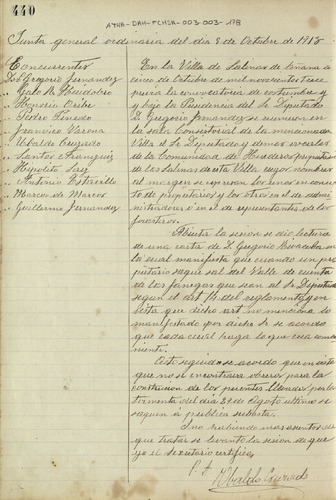 440
ATHA-DAH-FCHSA-003-003-178
Junta general ordinaria del dia 5 de Octubre de 1913
Concurrentes
D. Gregorio Fernandez
" Galo R. Ruidobro
" Honorio Oribe
" Pedro Pinedo
" Francisco Varona
" Ubaldo Cuezado
" Santos Aranguiz
" Hipolito Saez
" Antonio Estavillo
" Marcos de Marcos
" Guillermo Fernandez
En la Villa de Salinas de Añana a
cinco de Octubre de mil novecientos trece
previa la convocatoria de costumbre y
y bajo la Presidencia del Sr Diputado
D. Gregorio Fernandez se reunieron en
la sala Consistorial de la mencionada
Villa el Sr Diputado y demas vocales
de la Comunidad de Herederos propietarios
de las Salinas de esta Villa cuyos nombres
al margen se expresan los unos en concepto
de propietarios y los otros en el de administradores
ó en el de representantes de los
forasteros.
Abierta la sesion se dio lectura
de una carta de D. Gregorio
en la cual manifiesta que cuando un propietario
saque sal del Valle de cuenta
de las fanegas que sean al Sr Diputado
segun el art 74 del reglamento y en
vista que dicho art no menciona lo
manifestado por dicho Sr se acordo
que cada cual haga lo que crea conveniente.
Acto seguido se acordo que en vista
que no se encontraba obreros para la
construccion de los puentes llevados por la
tormenta del dia 31 de Agosto ultimo se
saquen á publica subasta.
Y no habiendo mas asuntos de
que tratar se levanto la sesion de que
yo el secretario certifico
P. A.
Ubaldo Cuezado